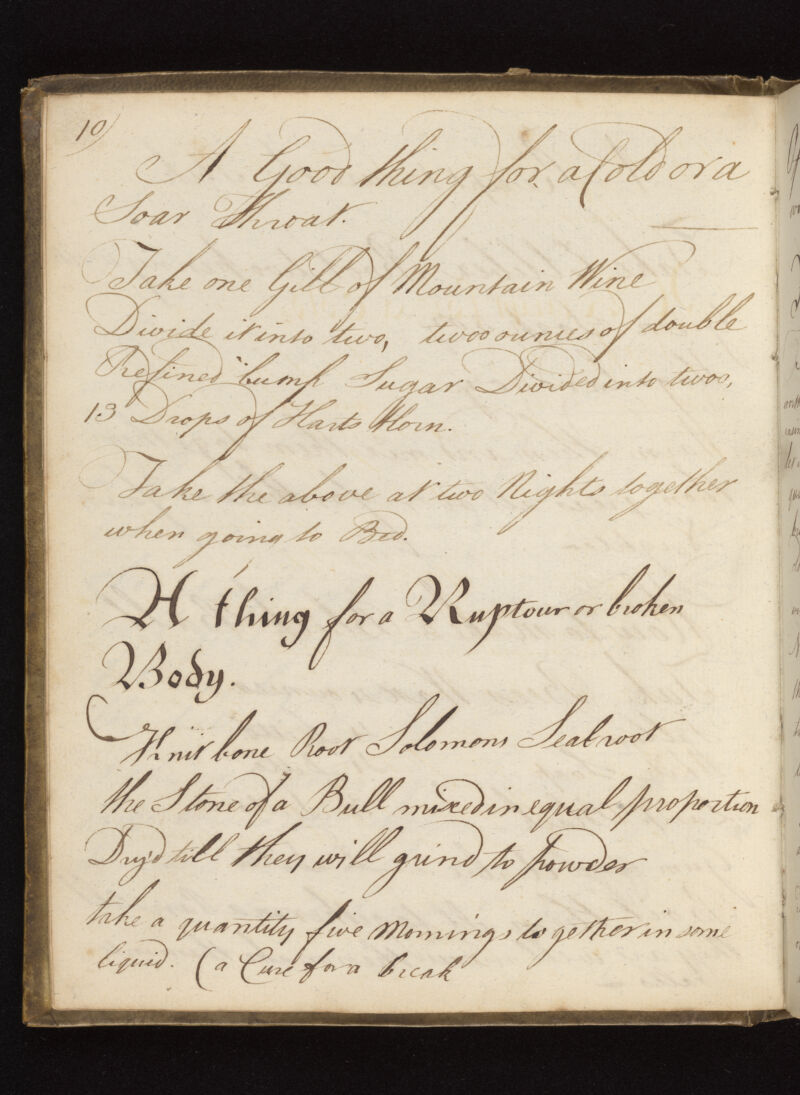 10)
A Good thing for a Cold or a
Soar Throat.
Take one Gill of Mountain Wine
Divide it into two, twoo ounces of double
Refined lump Sugar Divided into twoo,
13 Drops of Harts Horn.
Take the above at two Nights together
when going to Bed.
A thing for a Ruptour or broken
Body.
Knit bone Root Solomons Seal root
the Stone of a Bull mixed in equal proportion
Dry'd till they will grind to powder
take a quantity five Mornings together in some
liquid. (a Cure for a break